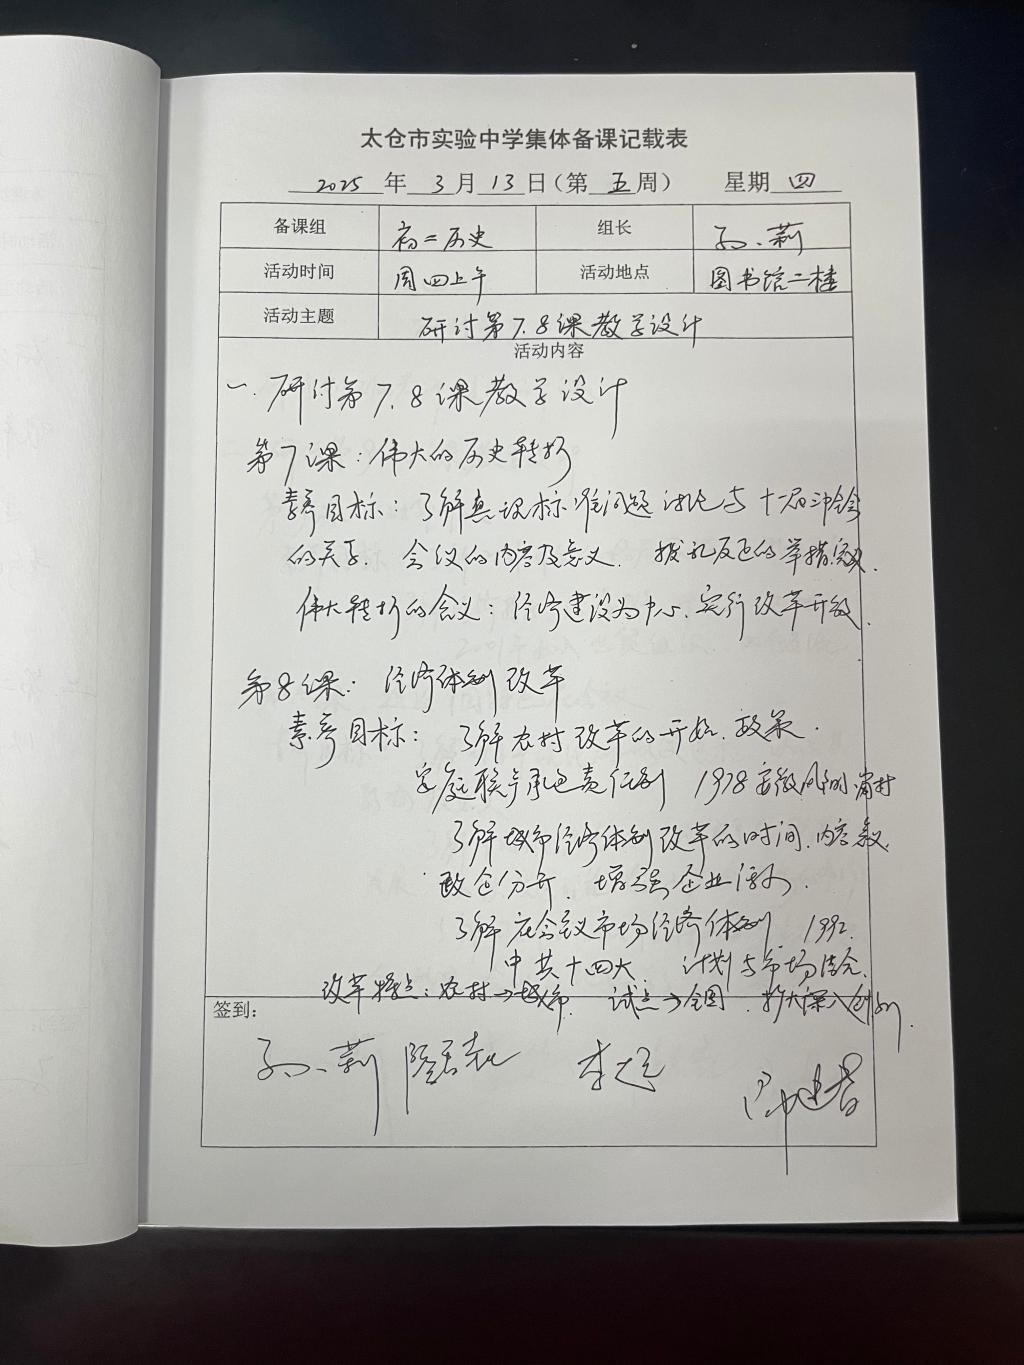 太仓市实验中学集体备课记载表
2025 年 3 月 13 日（第 五 周） 星期 四
备课组 初二历史 组长 孙莉
活动时间 周四上午 活动地点 图书馆二楼
活动主题 研讨第7.8课教学设计
活动内容
一. 研讨第7.8课教学设计
第7课：伟大的历史转折
素养目标：了解真理标准问题讨论与十一届三中全会
的关系. 会议的内容及意义. 拨乱反正的举措.
伟大转折的会议：经济建设为中心. 实行改革开放.
第8课：经济体制改革
素养目标：了解农村改革的开始. 政策.
家庭联产承包责任制 1978安徽凤阳小岗村
了解城市经济体制改革的时间. 内容. 意义.
政企分开. 增强企业活力.
了解社会主义市场经济体制 1992.
中共十四大. 计划与市场结合.
改革特点：农村→城市. 试点→全国. 扩大深入创新.
签到：
孙莉 李超